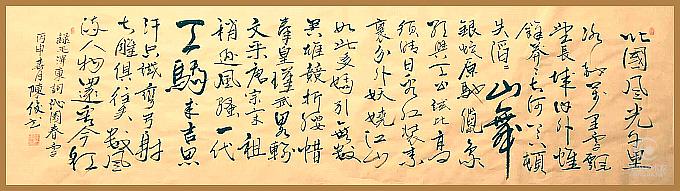 北國風光千里
冰封萬里雪飄
望長城內外惟
餘莽莽大河上下頓
失滔滔山舞
銀蛇原馳蠟象
欲與天公試比高
須晴日看紅裝素
裹分外妖嬈江山
如此多嬌引無數
英雄競折腰惜
秦皇漢武略輸
文采唐宗宋祖
稍遜風騷一代
天驕成吉思
汗只識彎弓射
大雕俱往矣數風
流人物還看今朝
錄毛澤東詞沁園春雪
丙申春月陳俊書